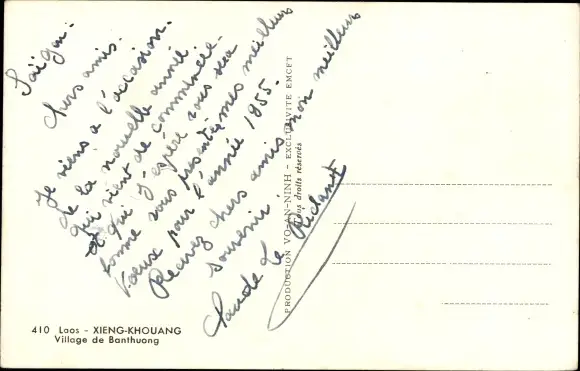 Saïgon.
Chers amis.
Je viens a l'occasion.
de la nouvelle année
qui vient de commencée-
et qui j'espère vous sera
bonne vous présenter mes meilleurs
Voeux pour l'année 1955.
Recevez chers amis mon meilleur
souvenir
Claude Le
PRODUCTION VO-AN-NINH - EXCLUSIVITE EMCET
Tous droits réservés
410 Laos - XIENG-KHOUANG
Village de Banthuong